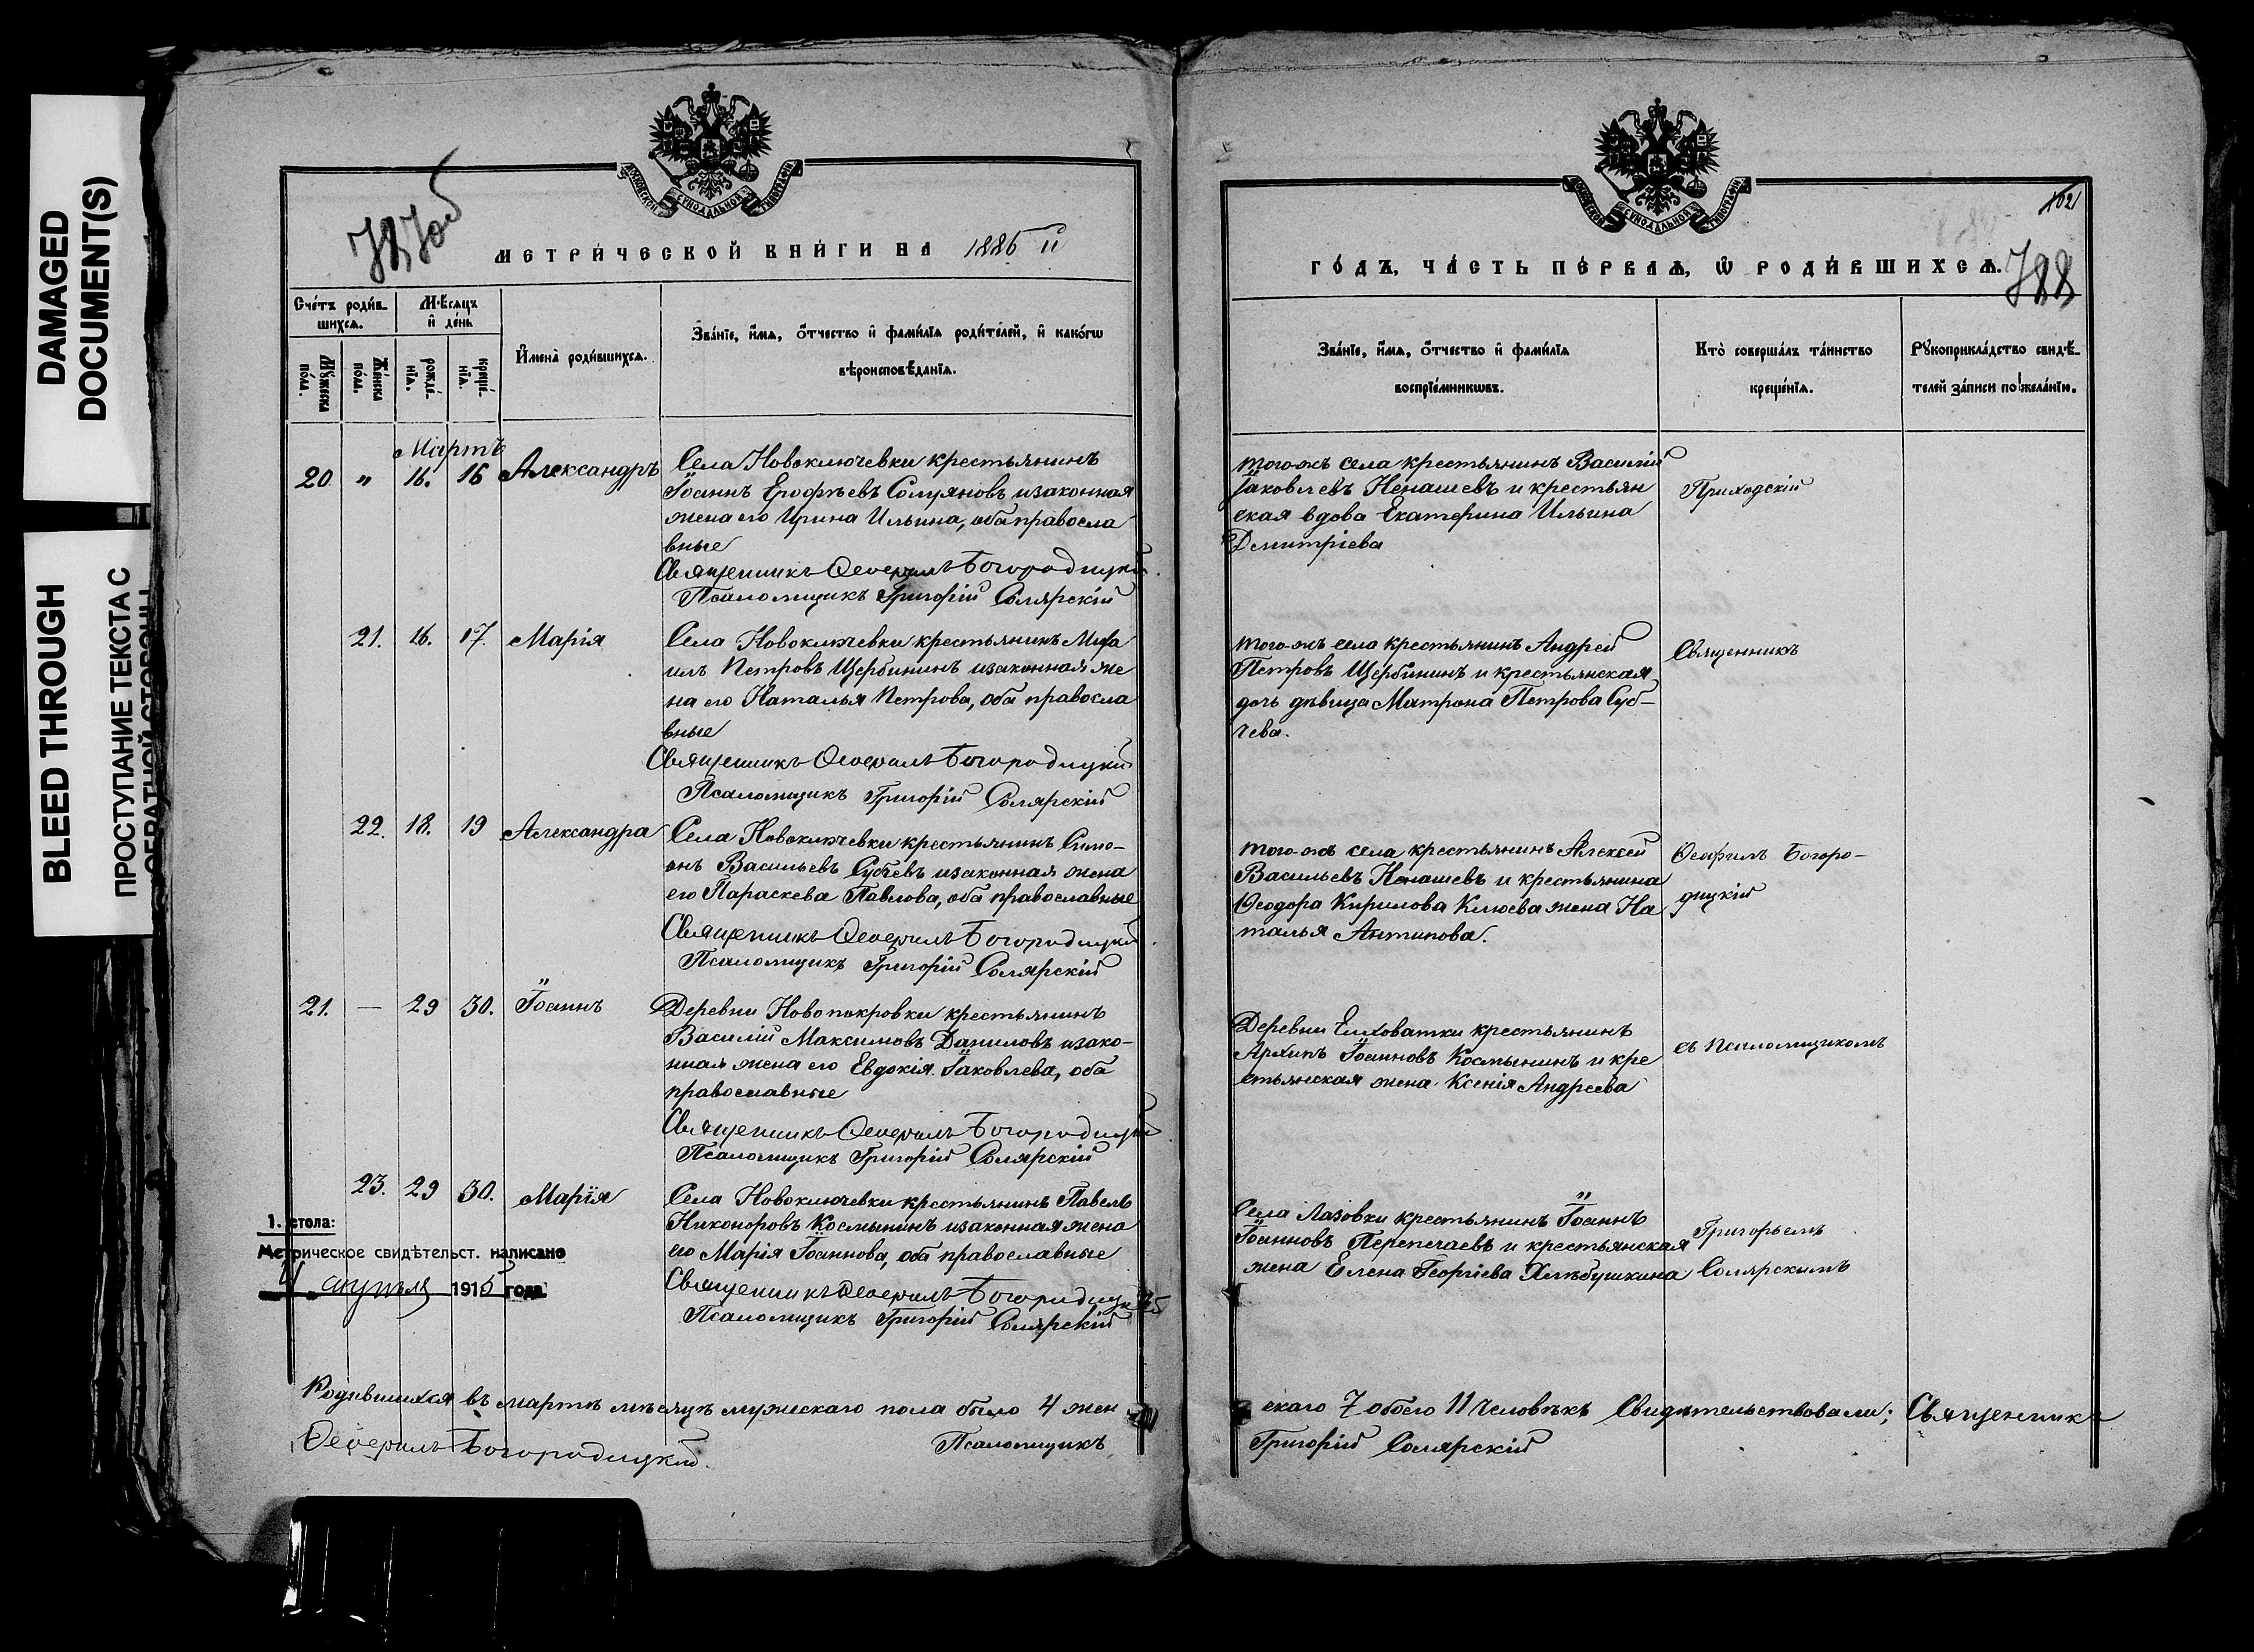 DAMAGED
DOCUMENT(S)
BLEED THROUGH
ПРОСТУПАНИЕ ТЕКСТА С
ОБРАТНОЙ СТОРОНЫ
МОСКОВСКОЙ СѴНОДАЛЬНОЙ ТИПОГРАФІИ
787об
МЕТРИ́ЧЕСКОЙ КНИ́ГИ НА 1885 й
Сче́тъ роди́в-
шихсѧ.
Мѣ́сѧцъ
и҆ де́нь
И҆мена̀ роди́вшихсѧ.
Зва́нїе, и҆́мѧ, ѻ҆́тчество и҆ фами́лїѧ роди́телей, и҆ како́гѡ
вѣроисповѣ́данїѧ.
Мꙋ́жеска
по́ла.
Же́нска
по́ла.
рожде́-
нїѧ.
креще́-
нїѧ.
Мартъ
20 " 16. 16 Александръ
Села Новоключевки крестьянинъ
Іоаннъ Ерофѣевъ Солуяновъ и законная
жена его Ирина Ильина, оба правосла
вные
Священникъ Ѳеофилъ Богородицкій.
Псаломщикъ Григорій Солярскій
21. 16. 17. Марія
Села Новоключевки крестьянинъ Миха
илъ Петровъ Щербининъ и законная же
на его Наталья Петрова, оба правосла
вные
Священникъ Ѳеофилъ Богородицкій
Псаломщикъ Григорій Солярскій
22. 18. 19 Александра
Села Новоключевки крестьянинъ Симе-
онъ Васильевъ Субчевъ и законная жена
его Параскева Павлова, оба православные
Священникъ Ѳеофилъ Богородицкій.
Псаломщикъ Григорій Солярскій
21. — 29 30. Іоаннъ
Деревни Новопокровки крестьянинъ
Василій Максимовъ Даниловъ и зако-
нная жена его Евдокія Іаковлева, оба
православные
Священникъ Ѳеофилъ Богородицкій
Псаломщикъ Григорій Солярскій
23. 29 30. Марія
Села Новоключевки крестьянинъ Павелъ
Никоноровъ Космынинъ и законная жена
его Марія Іоаннова, оба православные
Священникъ Ѳеофилъ Богородицкій
Псаломщикъ Григорій Солярскій
1. стола:
Метрическое свидѣтельст. написано
4 апрѣля 1915 года.
Родившихся въ мартѣ мѣсяцѣ мужескаго пола было 4 жен
Ѳеофилъ Богородицкій. Псаломщикъ
МОСКОВСКОЙ СѴНОДАЛЬНОЙ ТИПОГРАФІИ
102
788
ГО́ДЪ, ЧА́СТЬ ПЕ́РВАѦ, Ѡ҆ РОДИ́ВШИХСѦ.
Зва́нїе, и҆́мѧ, ѻ҆́тчество и҆ фами́лїѧ
воспрїе́мникѡвъ.
Кто̀ соверша́лъ та́инство
креще́нїѧ.
Рꙋкоприкла́дство свидѣ́-
телей за́писи по жела́нїю.
того-жъ села крестьянинъ Василій
Іаковлевъ Ненашевъ и крестьян
ская вдова Екатерина Ильина
Димитріева
Приходскій
того-жъ села крестьянинъ Андрей
Петровъ Щербининъ и крестьянская
дочь дѣвица Матрона Петрова Суб-
чева.
Священникъ
того-жъ села крестьянинъ Алексей
Васильевъ Ненашевъ и крестьянина
Ѳеодора Кирилова Клюева жена На
талья Антипова.
Ѳеофилъ Богоро-
дицкій
Деревни Елховатки крестьянинъ
Архипъ Іоанновъ Космынинъ и кре
стьянская жена Ксенія Андреева
съ Псаломщикомъ
Села Лазовки крестьянинъ Іоаннъ
Іоанновъ Перепечаевъ и крестьянская
жена Елена Георгіева Хлѣбушкина
Григорьемъ
Солярскимъ
скаго 7 обоего 11 человѣкъ Свидѣтельствовали; Священникъ
Григорій Солярскій